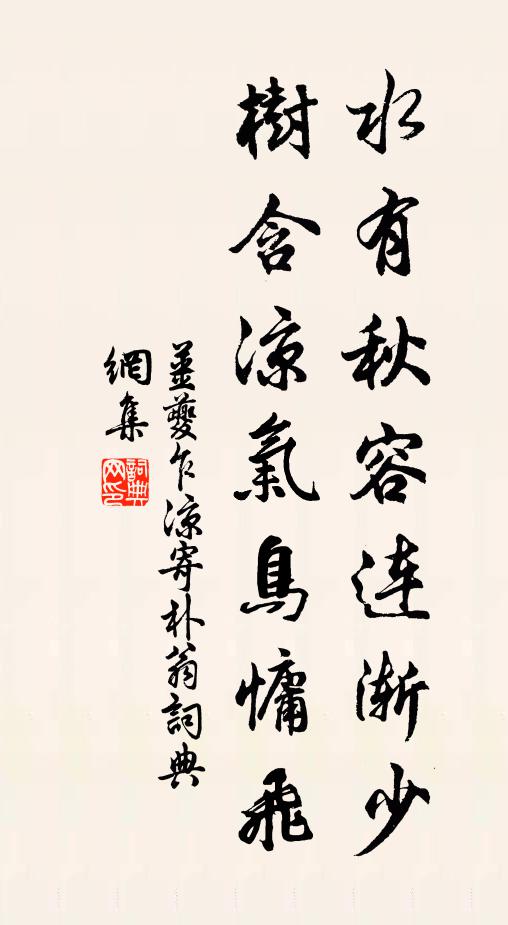 水有秋容連漸少
樹含涼氣鳥慵飛
薑夔乍涼寄朴翁詞典
網集
詞典
网印